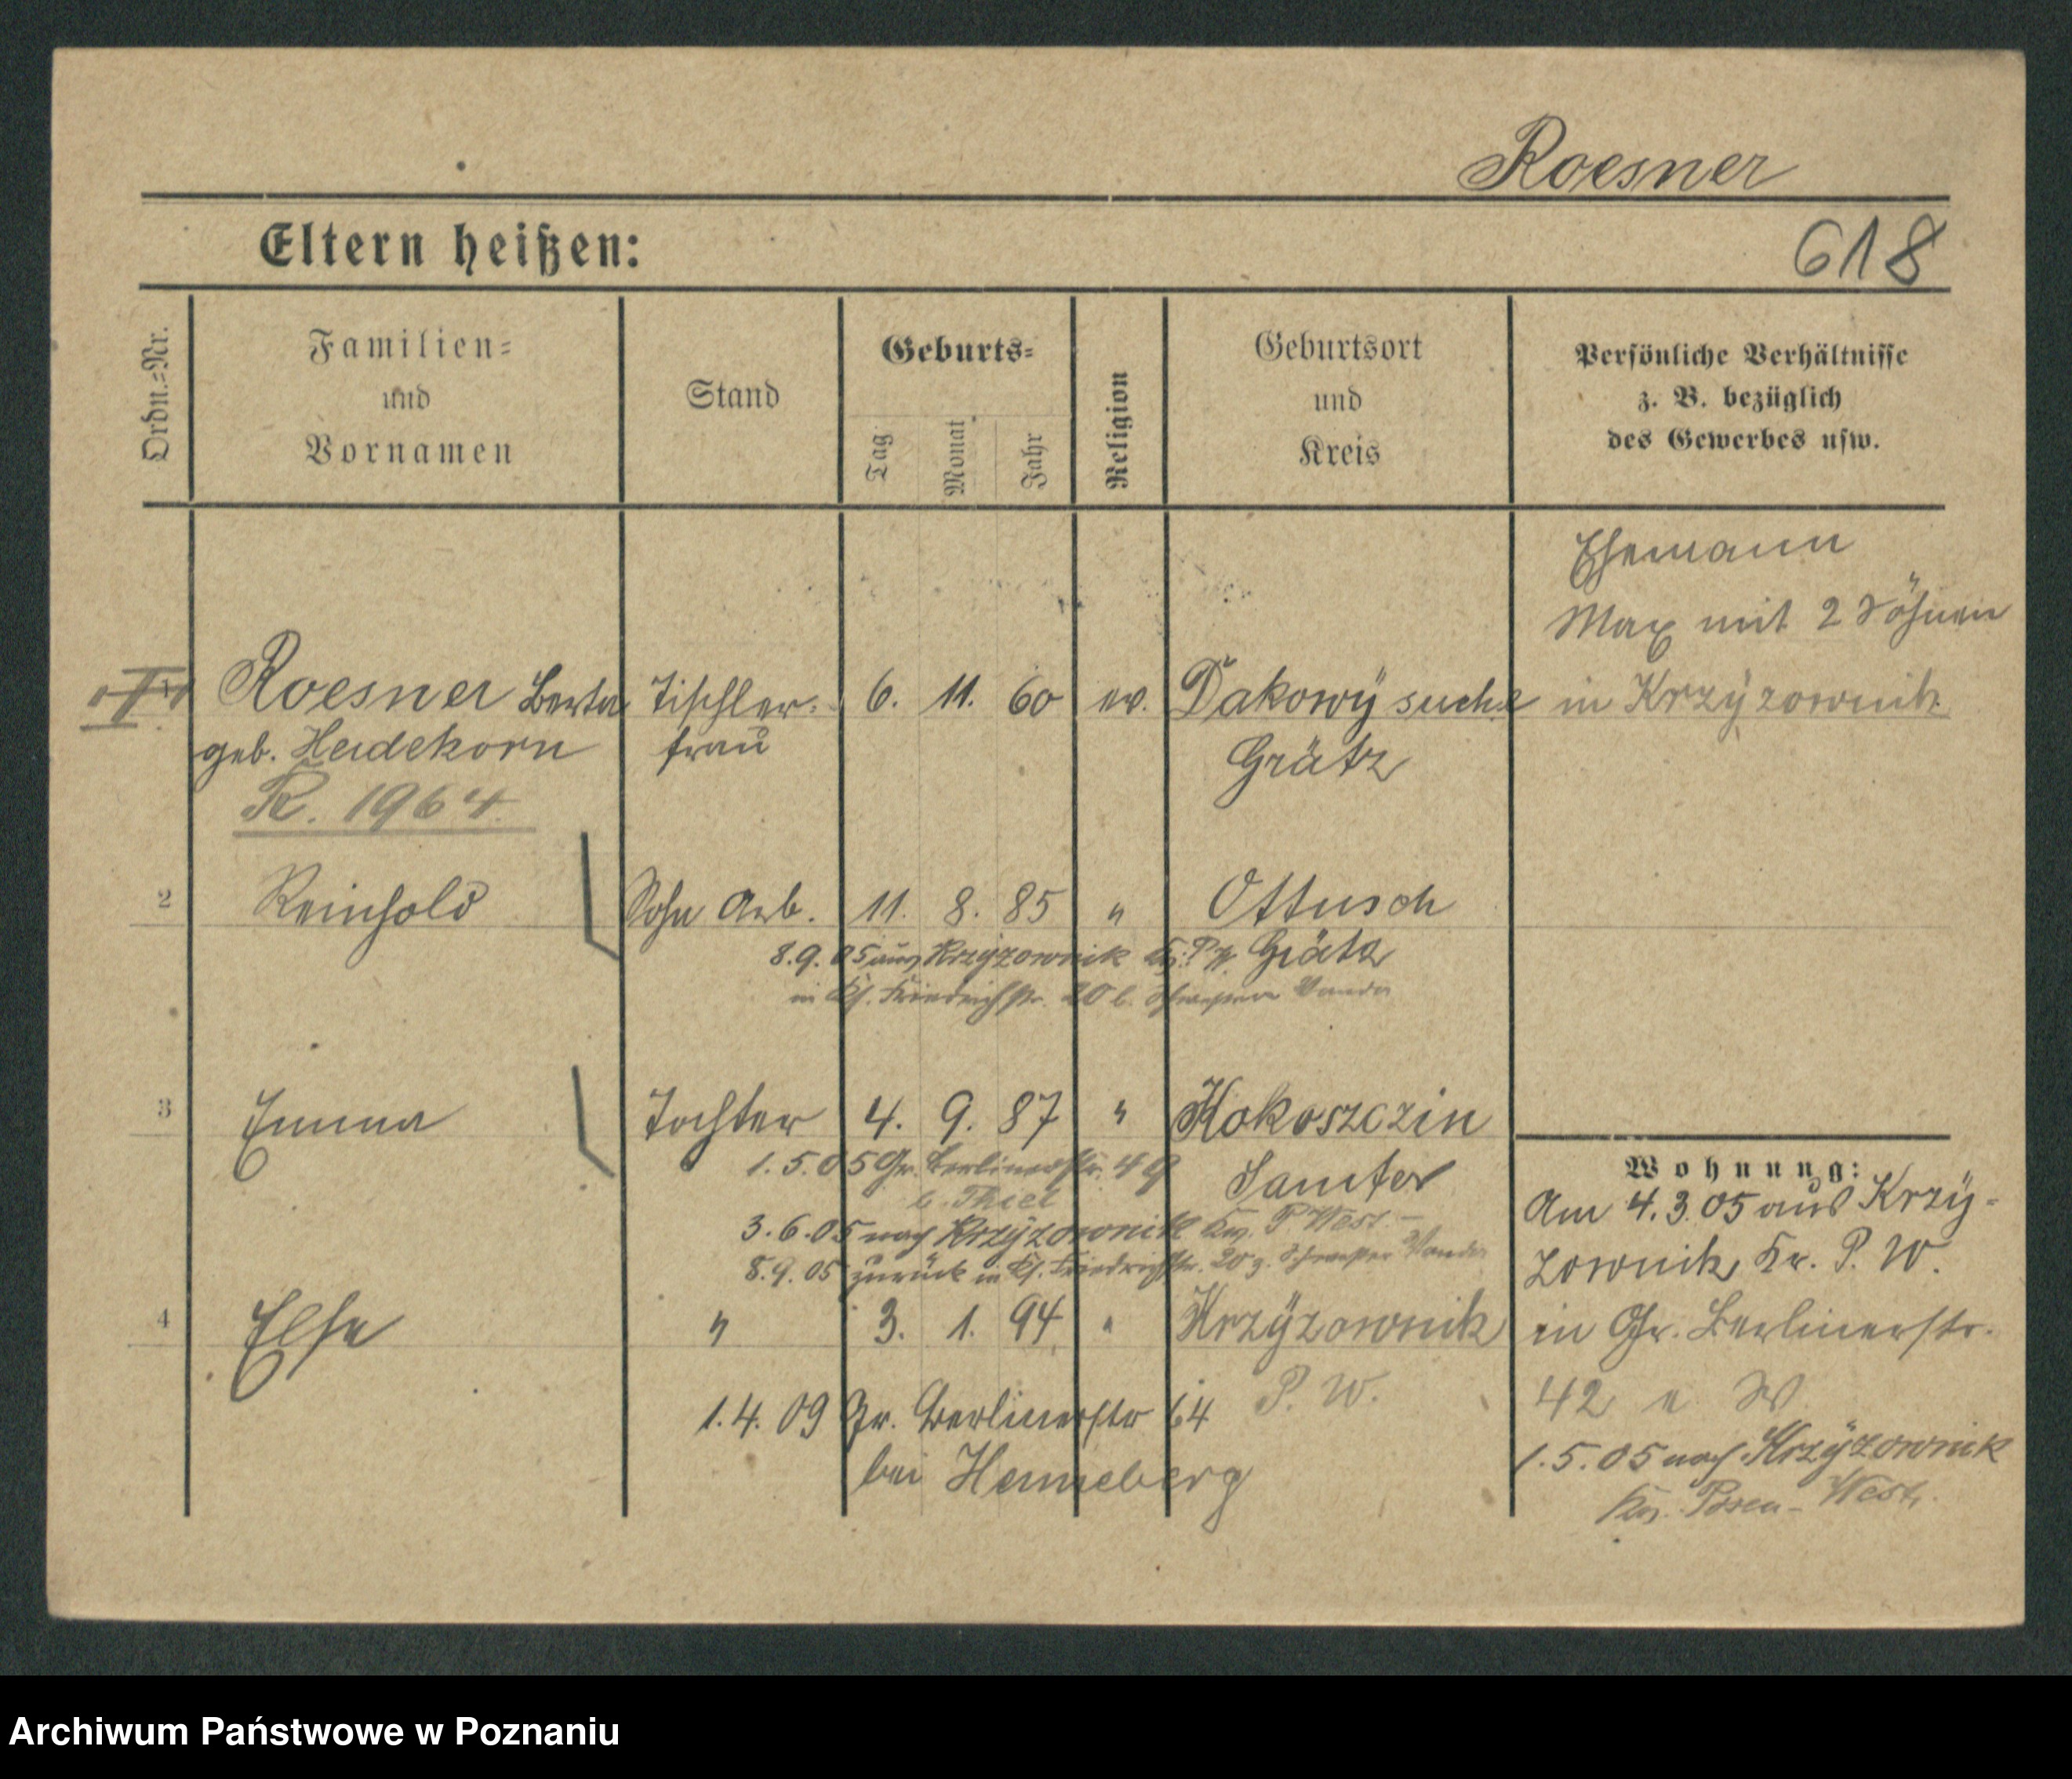 Roesner
Eltern heißen:
618
Ordn.=Nr.
Familien=
und
Vornamen
Stand
Geburts=
Tag
Monat
Jahr
Religion
Geburtsort
und
Kreis
Persönliche Verhältnisse
z. B. bezüglich
des Gewerbes usw.
Ehemann
Max mit 2 Söhnen
in Krzyzownik
1 Roesner Berta Tischler- 6. 11. 60 ev. Dakowy suche
geb. Heidekorn frau Grätz
R. 1964
2 Reinhold Sohn Arb. 11. 8. 85 " Ottusch
8.9.05 aus Krzyzownik Grätz
in Kl. Friedrichstr. 20 b.
3 Emma Tochter 4. 9. 87 " Kokoszczin
1.5.05 Gr. Berlinerstr. 49 Samter
b. Thiel
3.6.05 nach Krzyzownik P West.
8.9.05 zurück in Kl. Friedrichstr. 20 z. Schwester
4 Else " 3. 1. 94 " Krzyzownik
P. W.
1.4.09 Gr. Berlinerstr 64
bei Henneberg
Wohnung:
Am 4.3.05 aus Krzy-
zownik Kr. P. W.
in Gr. Berlinerstr.
42
1.5.05 nach Krzyzownik
Posen-West.
Archiwum Państwowe w Poznaniu